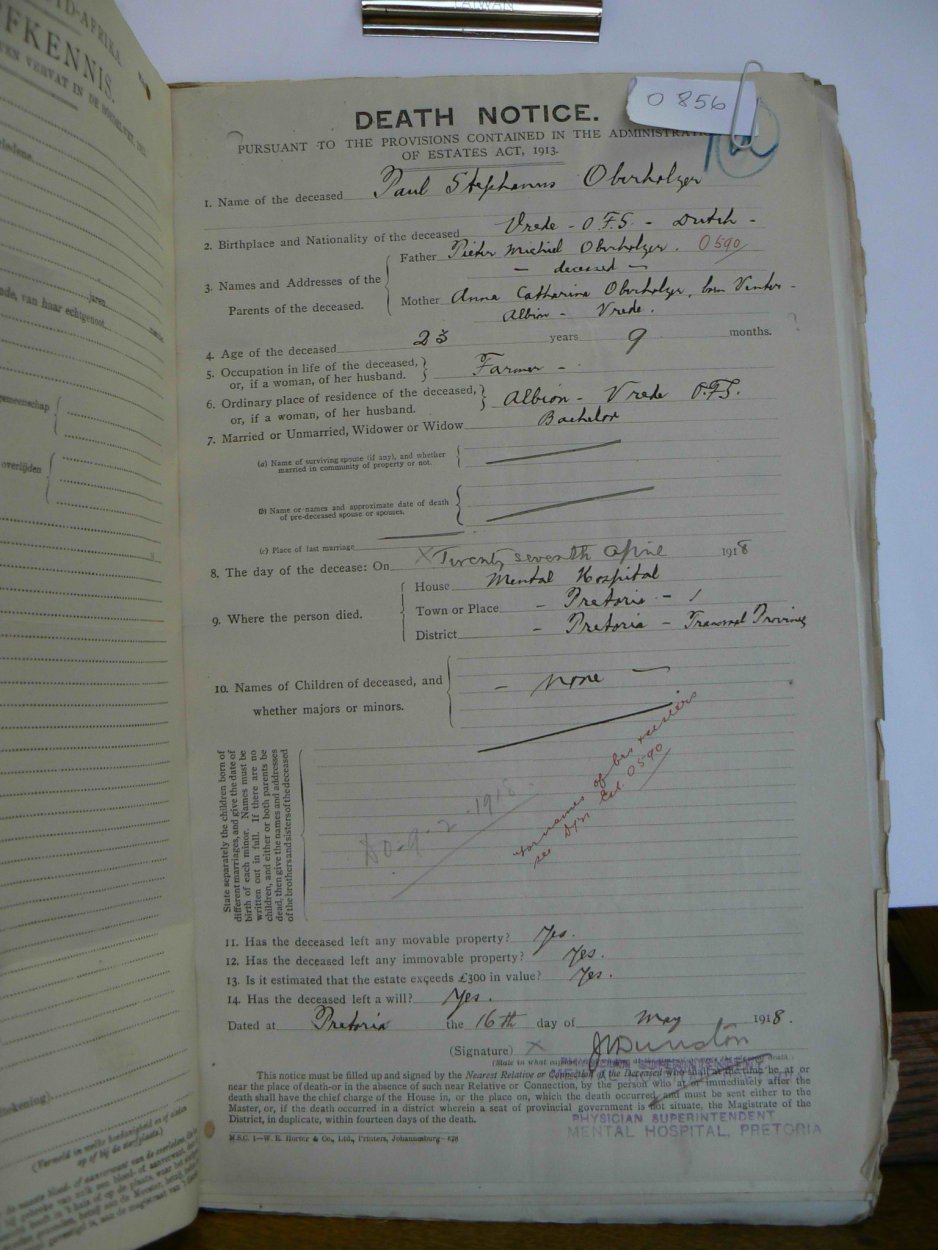 TAIWAN
O 856
DEATH NOTICE.
PURSUANT TO THE PROVISIONS CONTAINED IN THE ADMINISTRATI
OF ESTATES ACT, 1913.
1. Name of the deceased Paul Stephanus Oberholzer
2. Birthplace and Nationality of the deceased Vrede - O.F.S. - Dutch -
3. Names and Addresses of the Parents of the deceased.
Father Pieter Michiel Oberholzer. 0590
- deceased -
Mother Anna Catharina Oberholzer, born Venter -
Albion - Vrede.
4. Age of the deceased 23 years 9 months. ?
5. Occupation in life of the deceased, or, if a woman, of her husband. Farmer -
6. Ordinary place of residence of the deceased, or, if a woman, of her husband. Albion - Vrede O.F.S.
7. Married or Unmarried, Widower or Widow Bachelor
(a) Name of surviving spouse (if any), and whether married in community of property or not.
(b) Name or names and approximate date of death of pre-deceased spouse or spouses.
(c) Place of last marriage
8. The day of the decease: On X Twenty seventh April 1918
9. Where the person died.
House Mental Hospital
Town or Place - Pretoria -
District - Pretoria - Transvaal Province
10. Names of Children of deceased, and whether majors or minors. - none -
State separately the children born of
different marriages, and give the date of
birth of each minor. Names must be
written out in full. If there are no
children, and either or both parents be
dead, then give the names and addresses
of the brothers and sisters of the deceased
For names of bros & sisters
see D/N Est. 0590
11. Has the deceased left any movable property? Yes.
12. Has the deceased left any immovable property? Yes.
13. Is it estimated that the estate exceeds £300 in value? Yes.
14. Has the deceased left a will? Yes.
Dated at Pretoria the 16th day of May 1918.
(Signature) X JDunston
This notice must be filled up and signed by the Nearest Relative or Connection of the Deceased who shall at the time be at or
near the place of death—or in the absence of such near Relative or Connection, by the person who at or immediately after the
death shall have the chief charge of the House in, or the place on, which the death occurred, and must be sent either to the
Master, or, if the death occurred in a district wherein a seat of provincial government is not situate, the Magistrate of the
District, in duplicate, within fourteen days of the death.
PHYSICIAN SUPERINTENDENT
MENTAL HOSPITAL, PRETORIA
M.S.C. 1—W. E. Hortor & Co., Ltd., Printers, Johannesburg